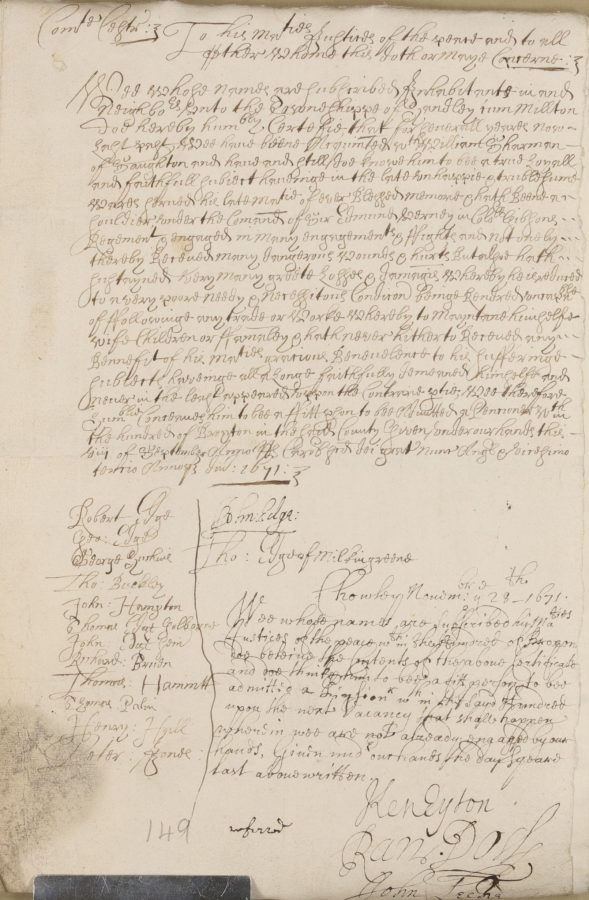 Com Cestr:
To his Maties Justices of the peace and to all
other whome this doth or Maye Concerne:
Wee whose names are subscribed Inhabitants in and
Neighbors unto the Towneshippe of Handley cum Millton
doe hereby humbly Certefie that for severall yeares now
last past Wee have beene acquinted with William Sharman
of Haughton and have and still doe knowe him to bee a true Loyall
and faithfull subiect haveinge in the late unhappie & trublesume
Wares served his late Matie of ever Blessed memorie & hath beene a
souldier under the Comand of Sir Edmund Verney in Coll Gibbons
Regement & engaged in Many engagements & ffights and not onely
thereby Receved many dangerous Wounds & hurts But alsoe hath
sustayned very many greate Losses & damages Whereby he is reduced
to a very poore needy & Necessitous Condicon Beinge Rendred unable
of ffollowinge any trade or Worke Whereby to Mayntane himselfe
wife Children or ffamaley & hath never hitherto Receved any
Bennefit of his Maties gracious Benevolence to his sufferinge
subiects haveinge all a Longe faithfully demeaned himselfe and
never in the least appeared uppon the Contrarie Wee therefore
humbly Conceive him to bee a ffitt pson to bee admitted a Pencioner within
the hundred of Broxton in the said County Given under our hands this
of September Anno Rs Caroli secdi dei gratia nunc Angl & vicesimo
tercio Annoq Dni: 1671:
Robert Edge
Geo: Edge
George
Tho: Buckley
John: Hampton
Thomas Golborne
John
Richard: Bruen
Thomas Hammett
Thomas Palin
Henry: Hill
Peter: Jones
Tho: Edge of Millingreene
Novem: ye 28th 1671.
We whose names are subscribed his Maties
Justices of the peace within the hundred of Broxon
doe beleive the contents of the above certificate
and doe thinke him to bee a fitt person to bee
admitted a Pension within the said hundred
upon the next vacancy that shall happen
wherein wee are not already engaged by our
hands. Given under our hands the day & yeare
last above written
Ken Eyton
Ran: Dod
John
149 referred